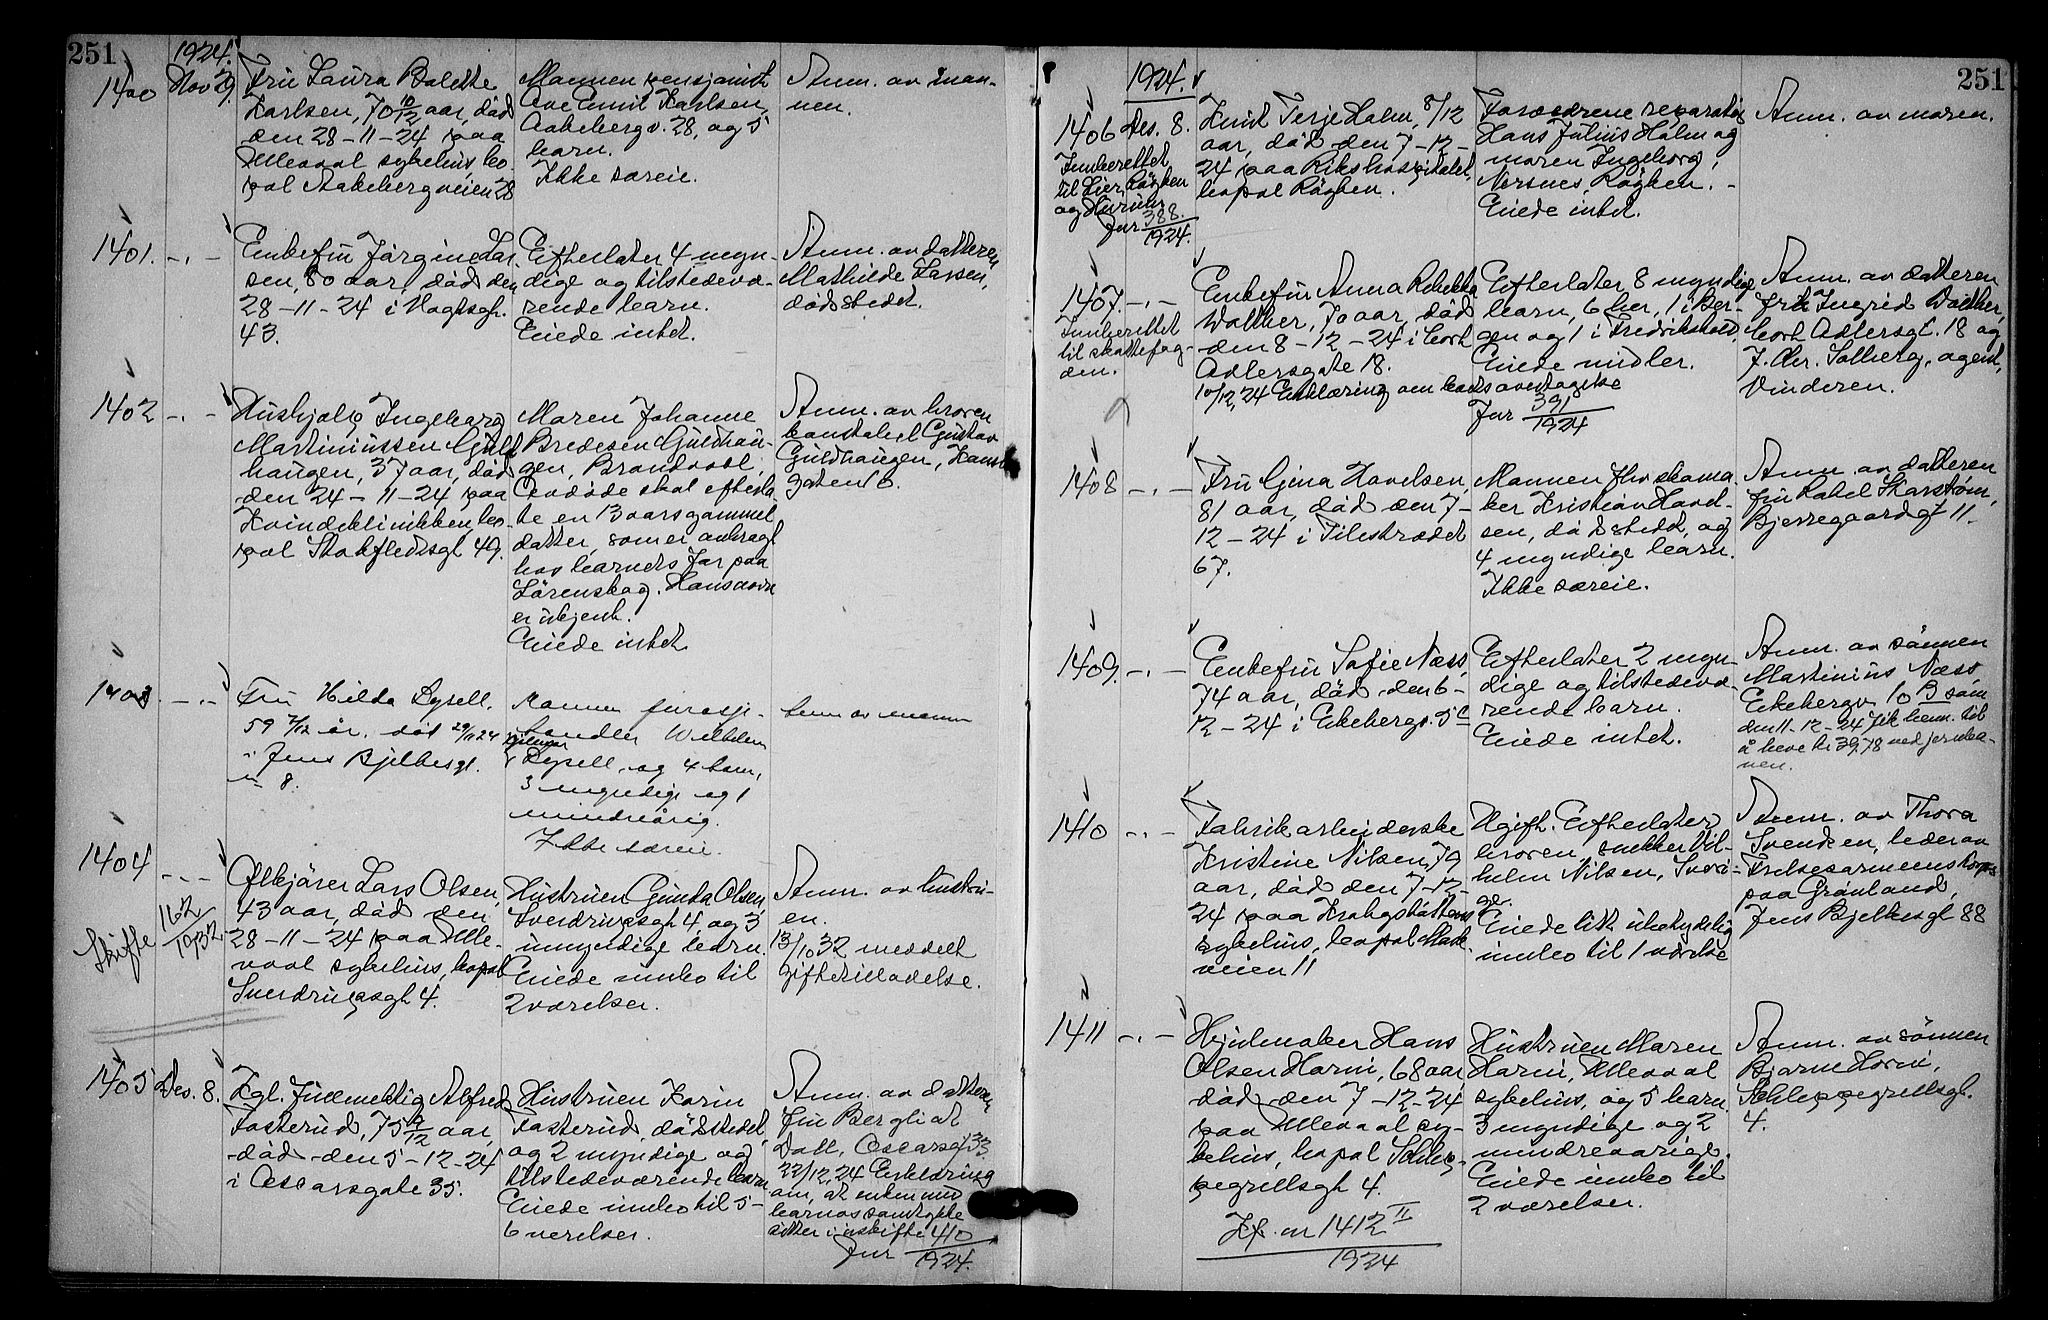 251
1924.
1400
Nov 29.
Fru Laura Bolette
Karlsen, 70 10/12 aar, död
den 28-11-24 paa
Ullevaal sykehus, bo-
pæl Aakebergveien 28
Mannen pensjonist
Ove Emil Karlsen,
Aakebergv. 28, og 5
barn.
Ikke særeie.
Anm. av man-
nen.
1401. -.-
Enkefru Jörgine Lar
sen, 80 aar, död den
28-11-24 i
43.
Efterlater 4 myn-
dige og tilstedevæ-
rende barn.
Eiede intet.
Anm. av datteren
Mathilde Larsen,
dödsstedet.
1402 -.-
Hushjelp Ingeborg
Martiniussen Guld
haugen, 37 aar, död
den 24-11-24 paa
Kvindeklinikken, bo-
pæl Stockfledtsgt 49.
Moren Johanne
Bredesen Guldhau-
gen, Brandvold.
Avdöde skal efterla-
te en 13 aars gammel
datter, som er anbragt
hos barnets far paa
Lörenskog. Hans navn
er ukjent.
Eiede intet
Anm. av broren
konstabel Gustav
Guldhaugen,
gaten 6.
1403 -.-
Fru Hilda Dysell,
59 7/12 år, död 29/11 24
i Jens Bjelkesgt.
nr 8.
Mannen
handler Wilhelm
Hilmar
Dysell, og 4 barn,
3 myndige og 1
mindreårig.
Ikke særeie.
Anm av mannen
1404 -.-
Skifte 162/1932
Ölkjörer Lars Olsen,
43 aar, död den
28-11-24 paa Ulle-
vaal sykehus, bopæl
Sverdrupsgt 4.
Hustruen Gunda Olsen,
Sverdrupsgt 4, og 3
umyndige barn.
Eiede innbo til
2 værelser.
Anm. av hustru-
en.
13/10 32 meddelt
giftetilladelse.
1405 Des. 8.
Kgl. fuldmektig Alfred
Fosterud, 75 9/12 aar,
död den 5-12-24
i Oscarsgate 35.
Hustruen Karin
Fosterud, dödsstedet,
og 2 myndige og
tilstedeværende barn
Eiede innbo til 5-
6 værelser.
Anm. av datteren
fru Bergliot
Dall, Oscarsgt 33.
22/12,24 Erklæring
om, at enken med
barnas samtykke
sitter i uskifte 410
Jur 1924.
251
1924.
1406 Des. 8.
Innberettet
til Lier, Röyken
og Hurum
Jur 388./1924.
Knut Terje Holm, 8/12
aar, död den 7-12-
24 paa Rikshospitalet,
bopæl Röyken.
Forældrene reparatör
Hans Julius Holm og
moren Ingeborg,
Nærsnes, Röyken.
Eiede intet.
Anm. av moren.
1407 -.-
Innberettet
til skattefog-
den.
Enkefru Anna Rebekka
Walther, 70 aar, död
den 8-12-24 i Cort
Adlersgate 18.
10/12,24 Erklæring om boets overtagelse
Jur 391/1924
Efterlater 8 myndige
barn, 6 her, 1 i Ber-
gen og 1 i Fredrikstad,
Eiede midler.
Anm. av datteren
frk Ingrid Walther,
Cort Adlersgt. 18 og
J. Chr. Solberg, agent,
Vinderen.
1408 -.-
Fru Gina Havelsen,
81 aar, död den 7-
12-24 i Pilestrædet
67.
Mannen fhv skoma
ker Kristian Havel-
sen, dödsstedet, og
4 myndige barn.
Ikke særeie.
Anm. av datteren
fru Rakel Skarström,
Bjerregaardsgt 11.
1409 -.-
Enkefru Sofie Næss,
74 aar, död den 6-
12-24 i Ekebergv. 5c
Efterlater 2 myn-
dige og tilstedevæ-
rende barn.
Eiede intet.
Anm. av sönnen
Martinius Næss,
Ekebergv 10 B som
den 11-12-24 fik bem. til
å heve kr 39,78 ved jernba-
nen.
1410 -.-
Fabrikarbeiderske
Kristine Nilsen, 79
aar, död den 7-12-
24 paa Krohgstöttens
sykehus, bopæl Mark-
veien 11
Ugift. Efterlater
broren, snekker Vil-
helm Nilsen, Sveri-
ge.
Eiede litt ubetydelig
innbo til 1 værelse
Anm. av Thora
Svendsen, leder av
Frelsesarmeens korps
paa Grönland,
Jens Bjelkesgt 88
1411 -.-
Hjulmaker Hans
Olsen Horni, 68 aar
död den 7-12-24
paa Ullevaal sy-
kehus, bopæl Schlep-
pegrellsgt 4.
Kf. nr 1412 II
1924
Hustruen Maren
Horni, Ullevaal
sykehus, og 5 barn,
3 myndige og 2
mindreaarige.
Eiede innbo til
2 værelser.
Anm. av sönnen
Bjarne Horni,
Schleppegrellsgt.
4.